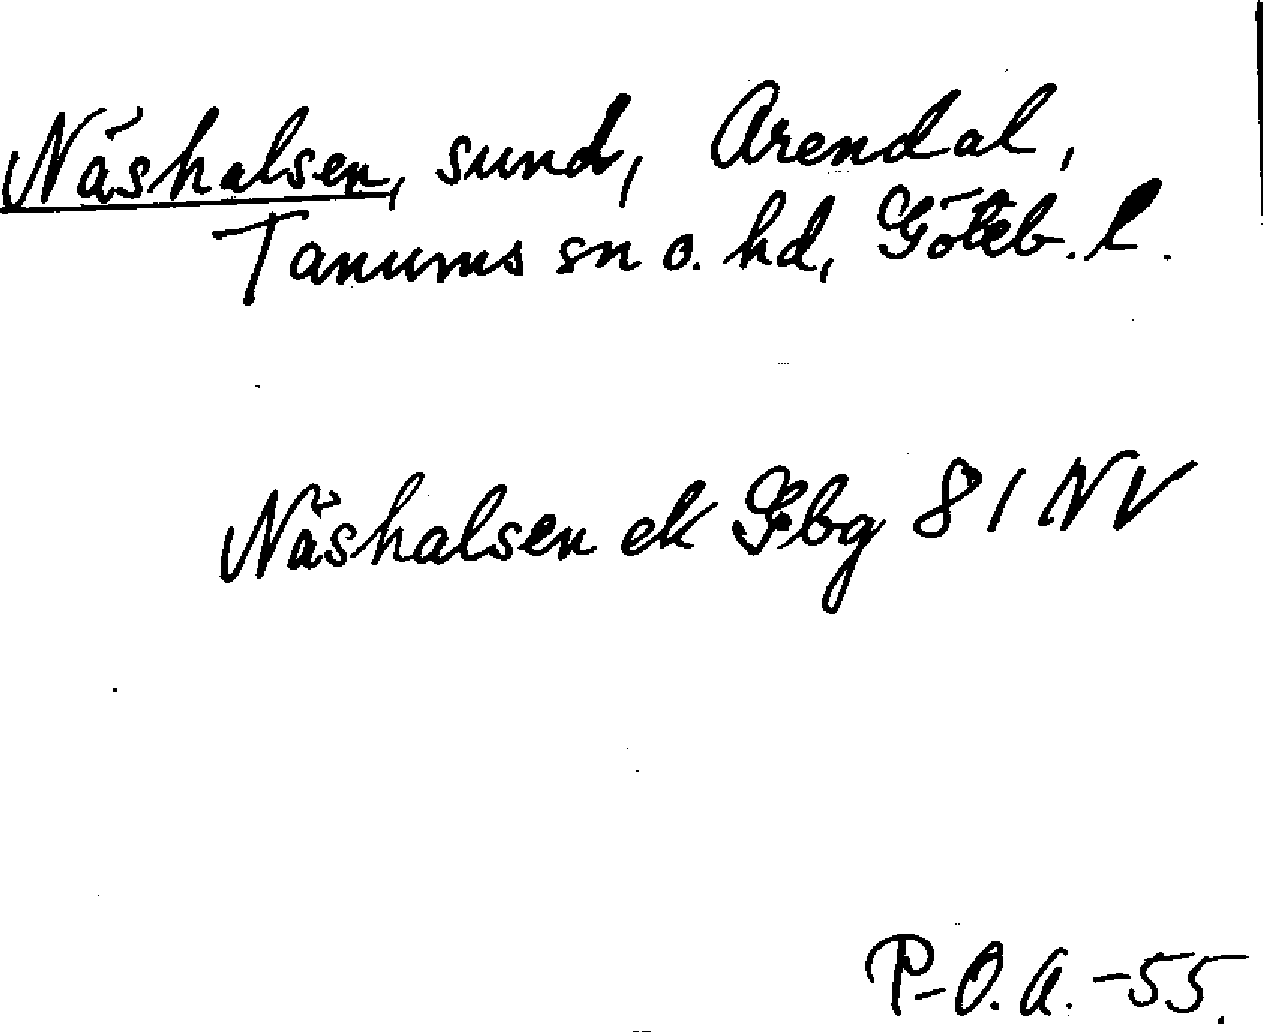 Näshalsen, sund, Arendal,
Tanums sn o. hd, Göteb. l.
Näshalsen ek Gbg 81 NV
P-O.A.-55.